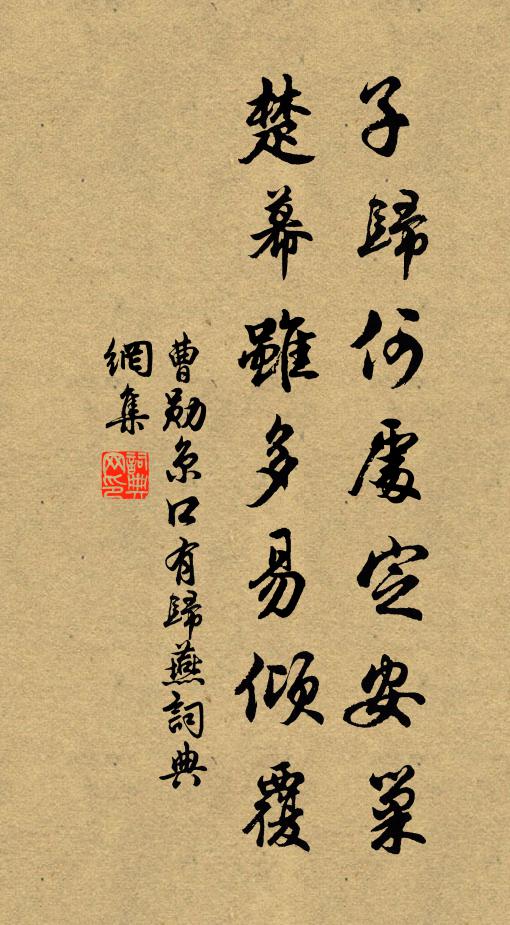 子歸何處定安巢
楚幕雖多易傾覆
曹勛京口有歸燕詞典
網集
詞典網印